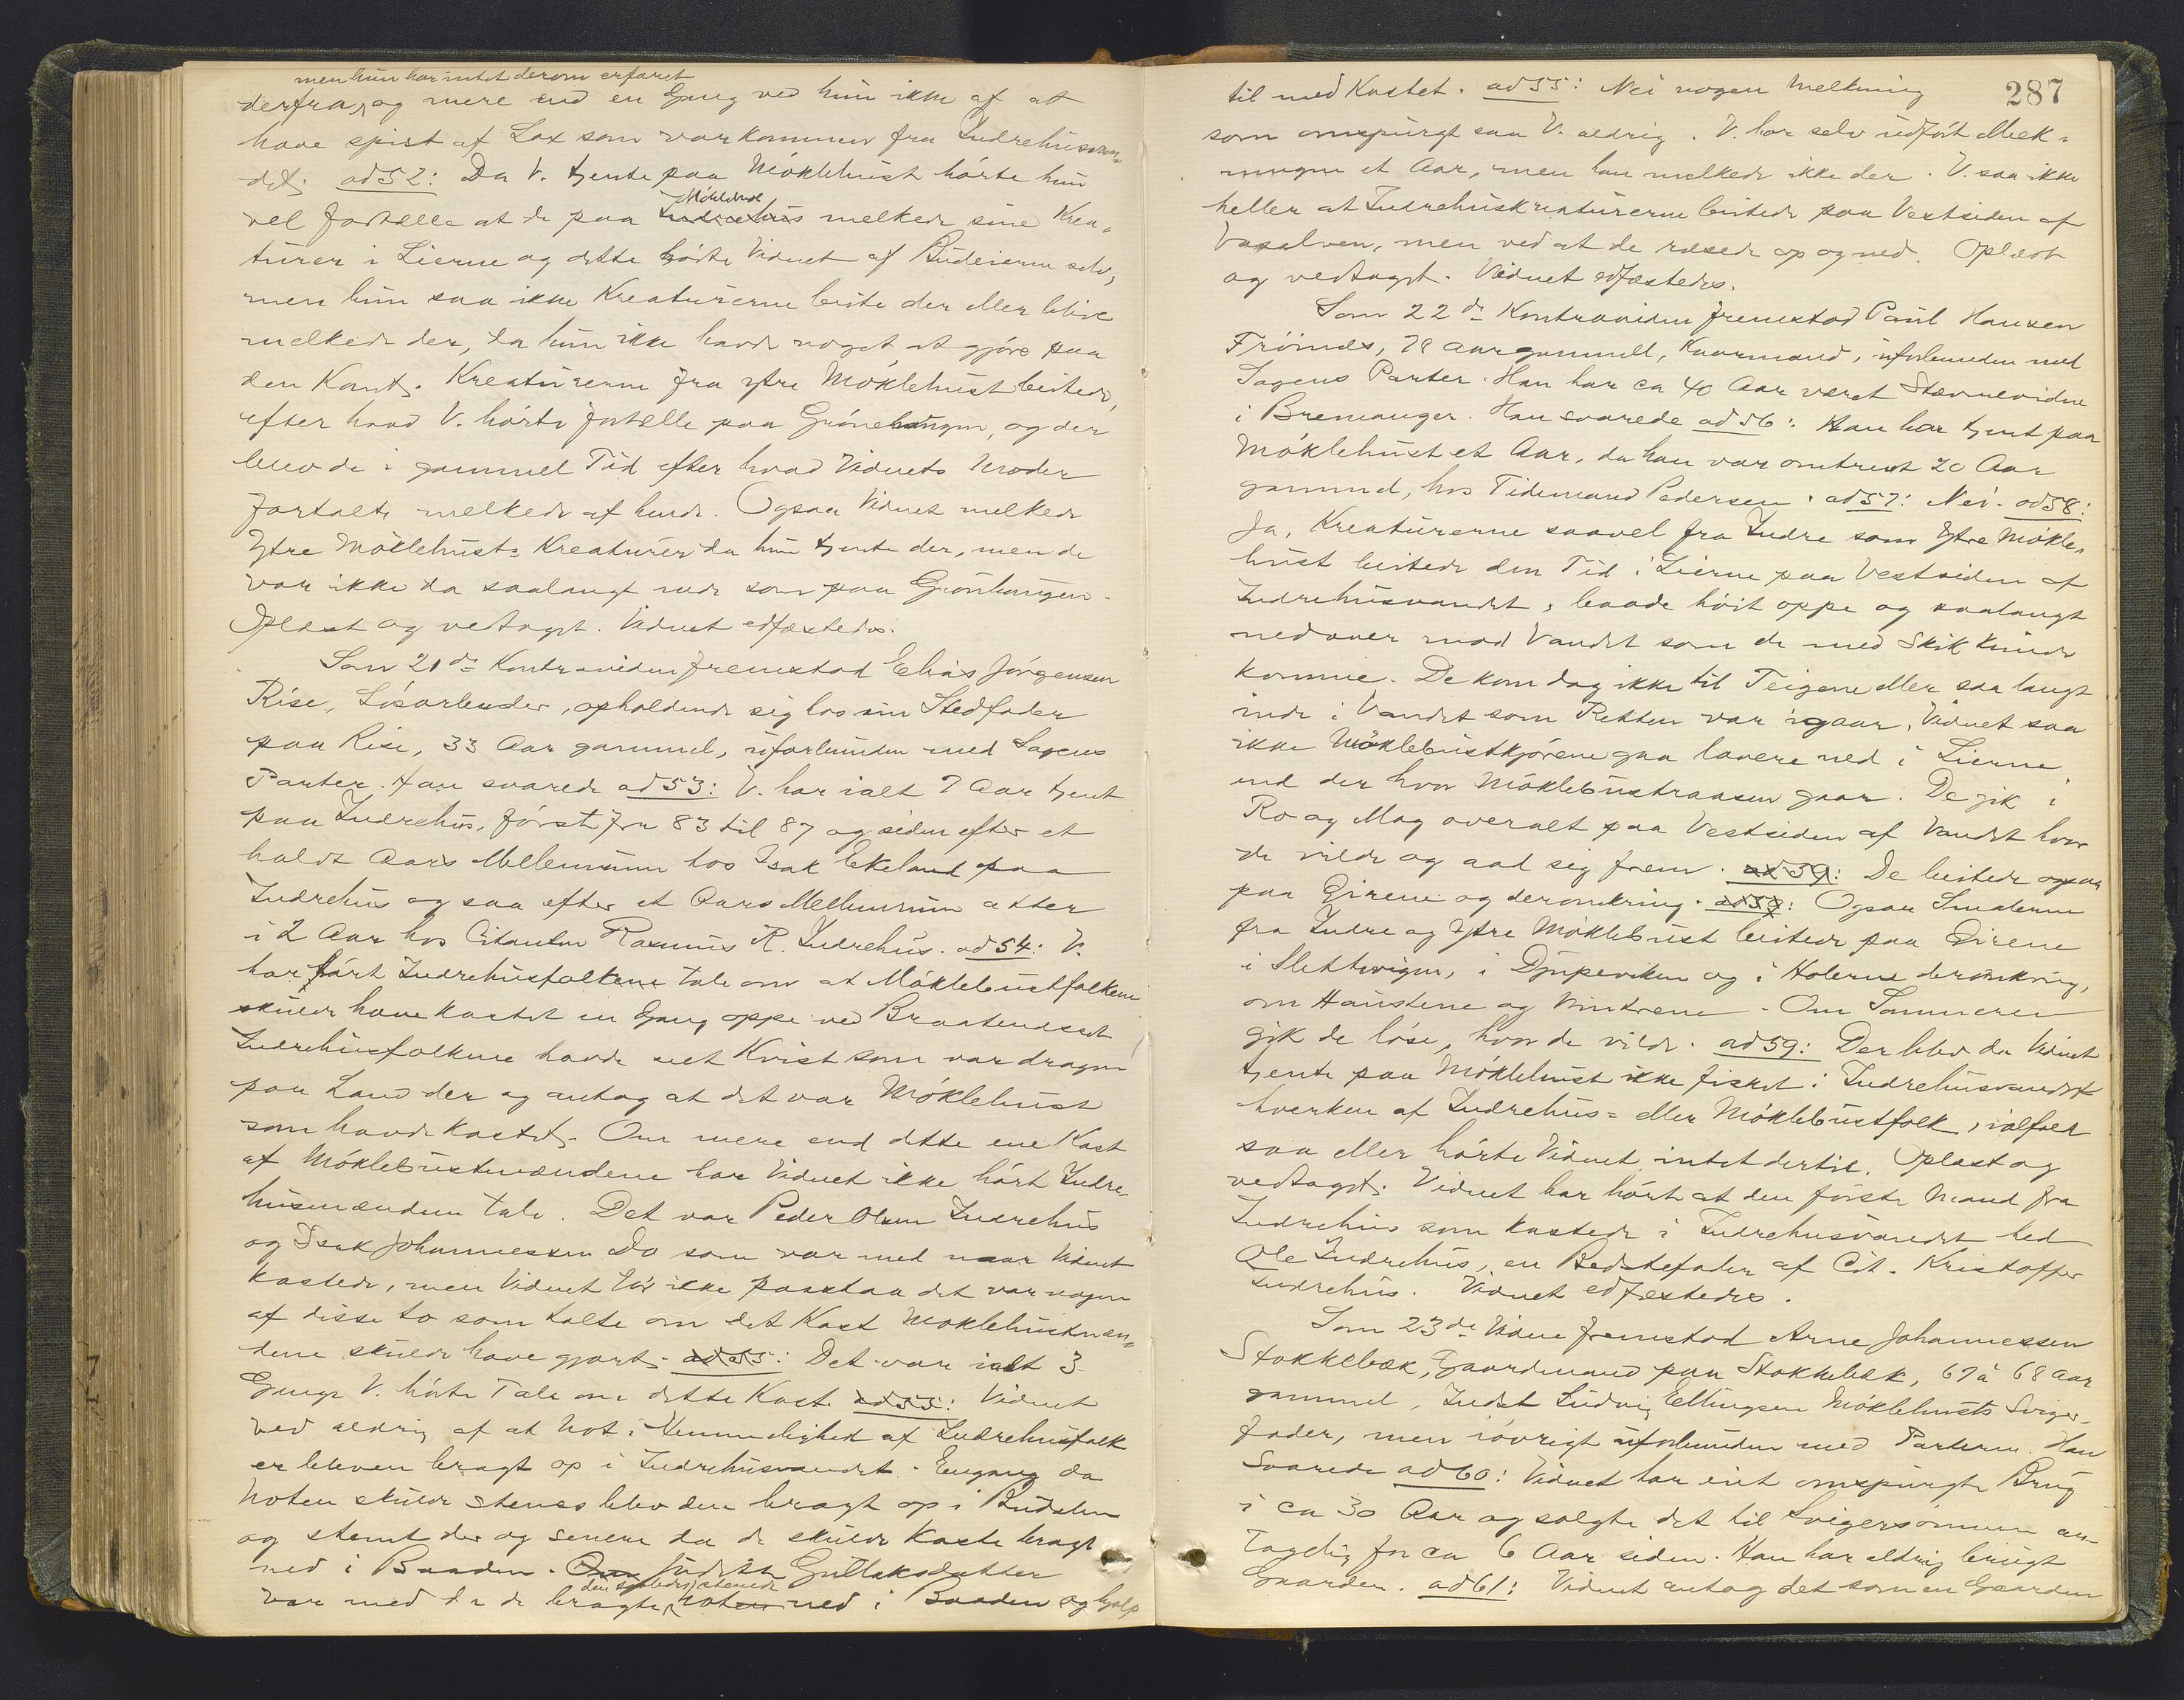 men hun har intet derom erfaret
derfra, og mere end en Gang ved hun ikke af at
have spist af Lax som var kommen fra Indrehusvan-
det. ad 52: Da V. tjente paa Møklebust hørte hun
Møklebust
vel fortælle at de paa Indrehus melkede sine Krea-
turer i Lierne og dette hørte Vidnet af Budeierne selv,
men hun saa ikke Kreaturerne beite der eller blive
melkede der, da hun ikke havde noget at gjøre paa
den Kant. Kreaturerne fra ytre Møklebust beitede,
efter hvad V. hørte fortælle paa Grønehaugen, og der
blev de i gammel Tid efter hvad Vidnets Moder
fortalte melkede af hende. Ogsaa Vidnet melkede
Ytre Møklebusts Kreaturer da hun tjente der, men de
var ikke da saalangt inde som paa Grønhaugen.
Oplæst og vedtaget. Vidnet edfæstedes.
Som 21de Kontravidne fremstod Elias Jørgensen
Rise, Løsarbeider, opholdende sig hos sin Stedfader
paa Rise, 33 Aar gammel, uforbunden med Sagens
Parter. Han svarede ad 53: V. har ialt 7 Aar tjent
paa Indrehus, først fra 83 til 87 og siden efter et
haldt Aars Mellemrum hos Isak Ekeland paa
Indrehus og saa efter et Aars Mellemrum atter
i 2 Aar hos Citanten Rasmus R. Indrehus. ad 54: V.
har hørt Indrehusfolkene tale om at Møklebustfolkene
skulde have kastet en Gang oppe ved Braatendset
Indrehusfolkene havde seet Kvist som var dragen
paa Land der og antog at det var Møklebust
som havde kastet. Om mere end dette ene Kast
af Møklebustmændene har Vidnet ikke hørt Indre-
husmændene tale. Det var Peder Olsen Indrehus
og Isak Johannessen Do som var med naar Vidnet
kastede, men Vidnet tør ikke paastaa det var nogen
af disse to som talte om det Kast Møklebustmæn-
dene skulde have gjort. ad 55: Det var ialt 3
Gange V. hørte Tale om dette Kast. ad 55: Vidnet
ved aldrig af at Not i Hemmelighed af Indrehusfolk
er bleven bragt op i Indrehusvandet. Engang da
Noten skulde stenes blev den bragt op i Budalen
og stent der og senere da de skulde kaste bragt
ned i Baaden. Om Judithe Gullaksdatter
den saaledes stenede
var med da de bragte Noten ned i Baaden og hjalp
287
til med Kastet. ad 55: Nei nogen Melkning
som omspurgt saa V. aldrig. V. har selv udført Melk-
ningen et Aar, men han melkede ikke der. V. saa ikke
heller at Indrehuskreaturerne beitede paa Vestsiden af
Vaselven, men ved at de ræsede op og ned. Oplæst
og vedtaget. Vidnet edfæstedes.
Som 22de Kontravidne fremstod Paul Hansen
Frøinæs, 78 aar gammel, Kaarmand, uforbunden med
Sagens Parter. Han har ca 40 Aar været Stævnevidne
i Bremanger. Han svarede ad 56: Han har tjent paa
Møklebust et Aar, da han var omtrent 20 Aar
gammel, hos Tidemand Pedersen. ad 57: Nei. ad 58:
Ja, Kreaturerne saavel fra Indre som Ytre Møkle-
bust beitede den Tid i Lierne paa Vestsiden af
Indrehusvandet, baade høit oppe og saalangt
nedover mod Vandet som de med Skik kunde
komme. De kom dog ikke til Teigene eller saa langt
inde i Vandet som Retten var igaar. Vidnet saa
ikke Møklebustkjørene gaa lavere ned i Lierne
end der hvor Møklebustraasen gaar. De gik i
Ro og Mag overalt paa Vestsiden af Vandet hvor
de vilde og aad sig frem. ad 59: De beitede ogsaa
paa Eirene og deromkring. ad 59: Ogsaa Smalerne
fra Indre og Ytre Møklebust beitede paa Eirene
i Slettevigen, i Djupeviken og i Holerne deromkring,
om Høstene og Vintrene. Om Sommeren
gik de løse, hvor de vilde. ad 59: Der blev da Vidnet
tjente paa Møklebust ikke fisket i Indrehusvandet
hverken af Indrehus- eller Møklebustfolk, ialfald
saa eller hørte Vidnet intet dertil. Oplæst og
vedtaget. Vidnet har hørt at den første Mand fra
Indrehus som kastede i Indrehusvandet hed
Ole Indrehus, en Bedstefader af Cit. Kristoffer
Indrehus. Vidnet edfæstedes.
Som 23de Vidne fremstod Arne Johannessen
Stokkebæk, Gaardmand paa Stokkebæk, 67 à 68 Aar
gammel, Indst Ludvig Ellingsen Møklebusts Sviger-
fader, men iøvrigt uforbunden med Parterne. Han
svarede ad 60: Vidnet har eiet omspurgte Brug
i ca 30 Aar og solgte det til Svigersønnen an-
tagelig for ca 6 Aar siden. Han har aldrig brugt
Gaarden. ad 61: Vidnet antog det som en Gaarden